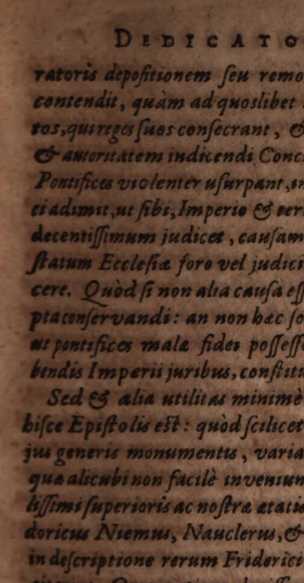 DEDICATO
ratoris depositionem seu remo
contendit, quàm ad quoslibet
tos, qui reges suos consecrant, &
& autoritatem indicendi Conc
Pontifices violenter usurpant, in
ei adimit, ut sibi, Imperio & ver
decentissimum judicet, causam
statum Ecclesiæ foro vel judici
cere. Quòd si non alia causa ess
pta conservandi: an non hæc so
ut pontifices malæ fidei possess
bendis Imperii juribus, constitu
Sed & alia utilitas minimè
hisce Epistolis est: quòd scilicet
jus generis monumentis, varia
quæ alicubi non facilè inveniun
lissimi superioris ac nostræ ætatis
doricus Niemus, Nauclerus, &
in descriptione rerum Friderici